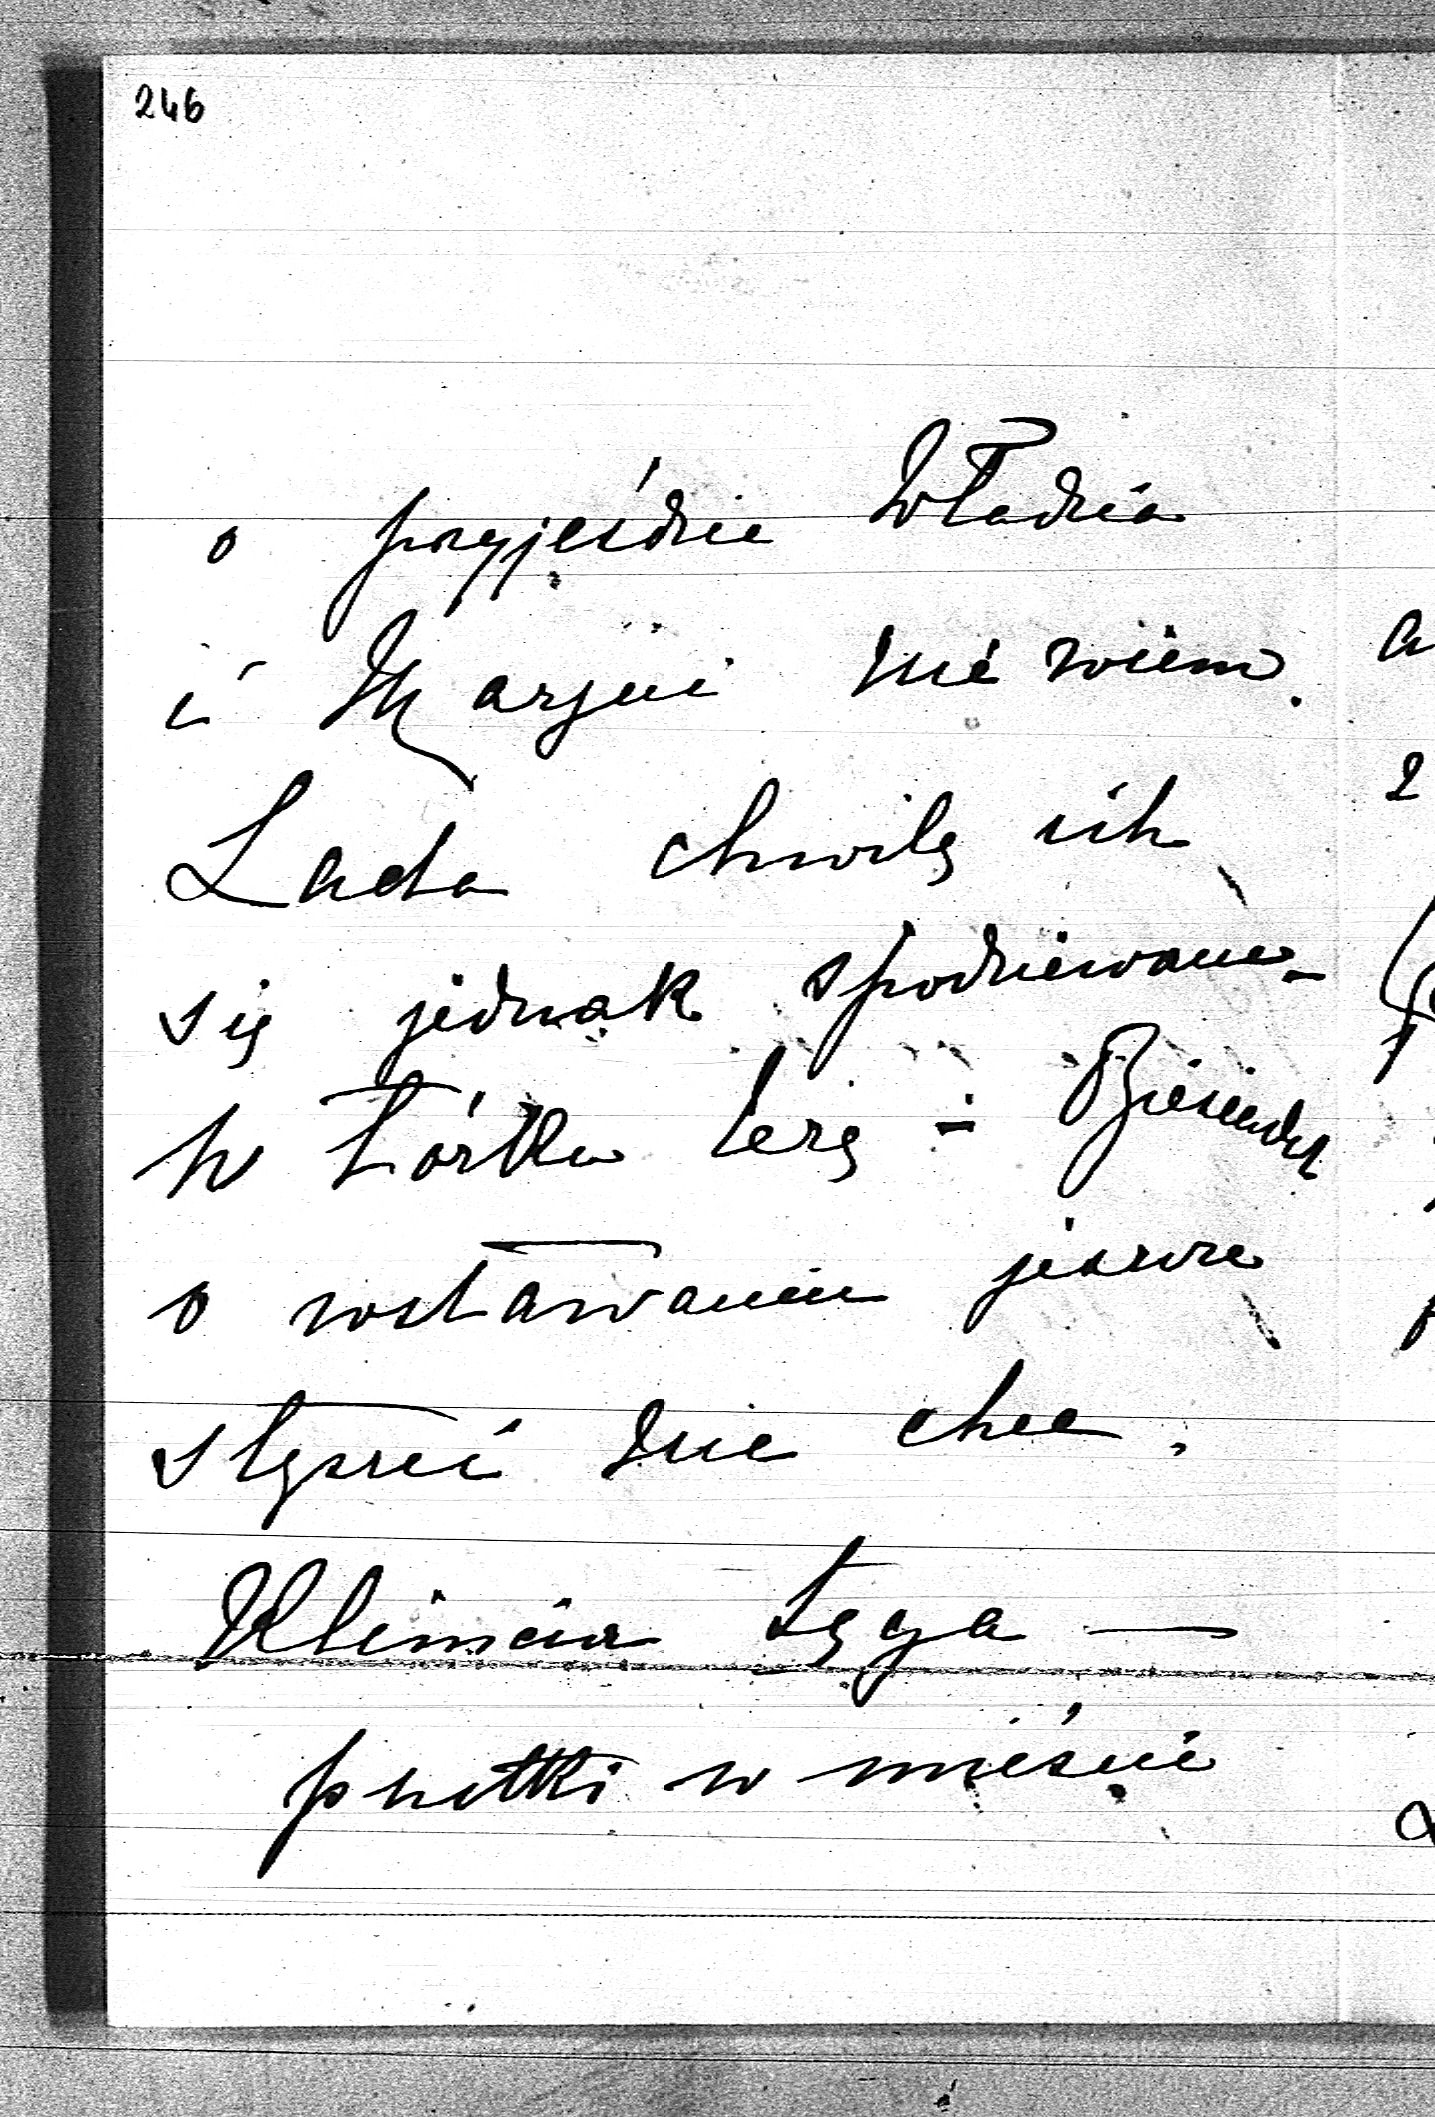 246
o przyjeździe Władzia
i Maryni nie wiem.
Lada chwilę ich
się jednak spodziewam –
W łóżku leżę –
o wstawaniu jeszcze
słyszeć nie chce.
Klimcia tęga —
w mieście